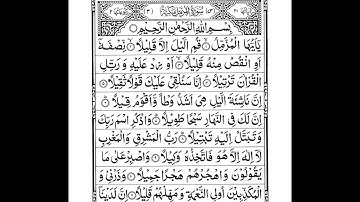 سورة المزمل مكية
بسم الله الرحمن الرحيم
يٰۤاَيُّهَا الْمُزَّمِّلُ ۙ قُمِ الَّيْلَ اِلَّا قَلِيْلًا ۙ نِّصْفَهٗۤ
اَوِ انْقُصْ مِنْهُ قَلِيْلًا ۙ اَوْ زِدْ عَلَيْهِ وَ رَتِّلِ
الْقُرْاٰنَ تَرْتِيْلًا ؕ اِنَّا سَنُلْقِيْ عَلَيْكَ قَوْلًا ثَقِيْلًا
اِنَّ نَاشِئَةَ الَّيْلِ هِيَ اَشَدُّ وَطْاً وَّ اَقْوَمُ قِيْلًا ؕ
اِنَّ لَكَ فِي النَّهَارِ سَبْحًا طَوِيْلًا ؕ وَ اذْكُرِ اسْمَ رَبِّكَ
وَ تَبَتَّلْ اِلَيْهِ تَبْتِيْلًا ؕ رَبُّ الْمَشْرِقِ وَ الْمَغْرِبِ
لَاۤ اِلٰهَ اِلَّا هُوَ فَاتَّخِذْهُ وَكِيْلًا وَ اصْبِرْ عَلٰى مَا
يَقُوْلُوْنَ وَ اهْجُرْهُمْ هَجْرًا جَمِيْلًا وَ ذَرْنِيْ وَ
الْمُكَذِّبِيْنَ اُولِي النَّعْمَةِ وَ مَهِّلْهُمْ قَلِيْلًا اِنَّ لَدَيْنَاۤ